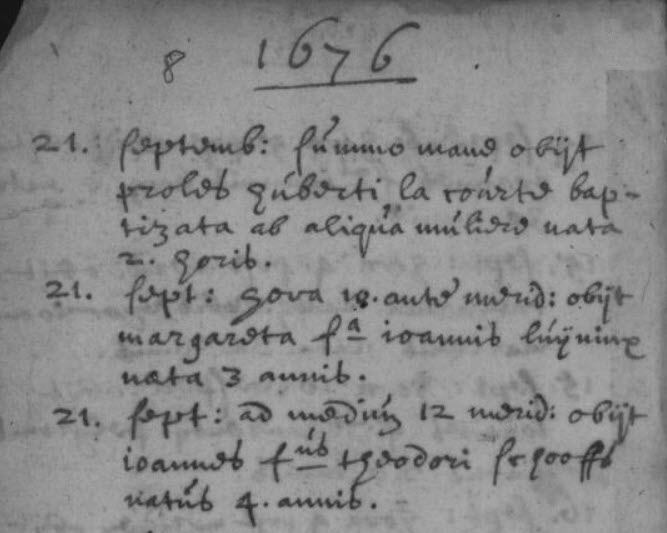 8 1676
21. septemb: summo mane obijt
proles huberti la courte bap-
tizata ab aliqua muliere nata
2. horis.
21. sept: hora 18. ante merid: obijt
margareta fa ioannis luijninx
nata 3 annis.
21. sept: ad medium 12 merid: obijt
ioannes fus theodori schooffs
natus 4. annis.